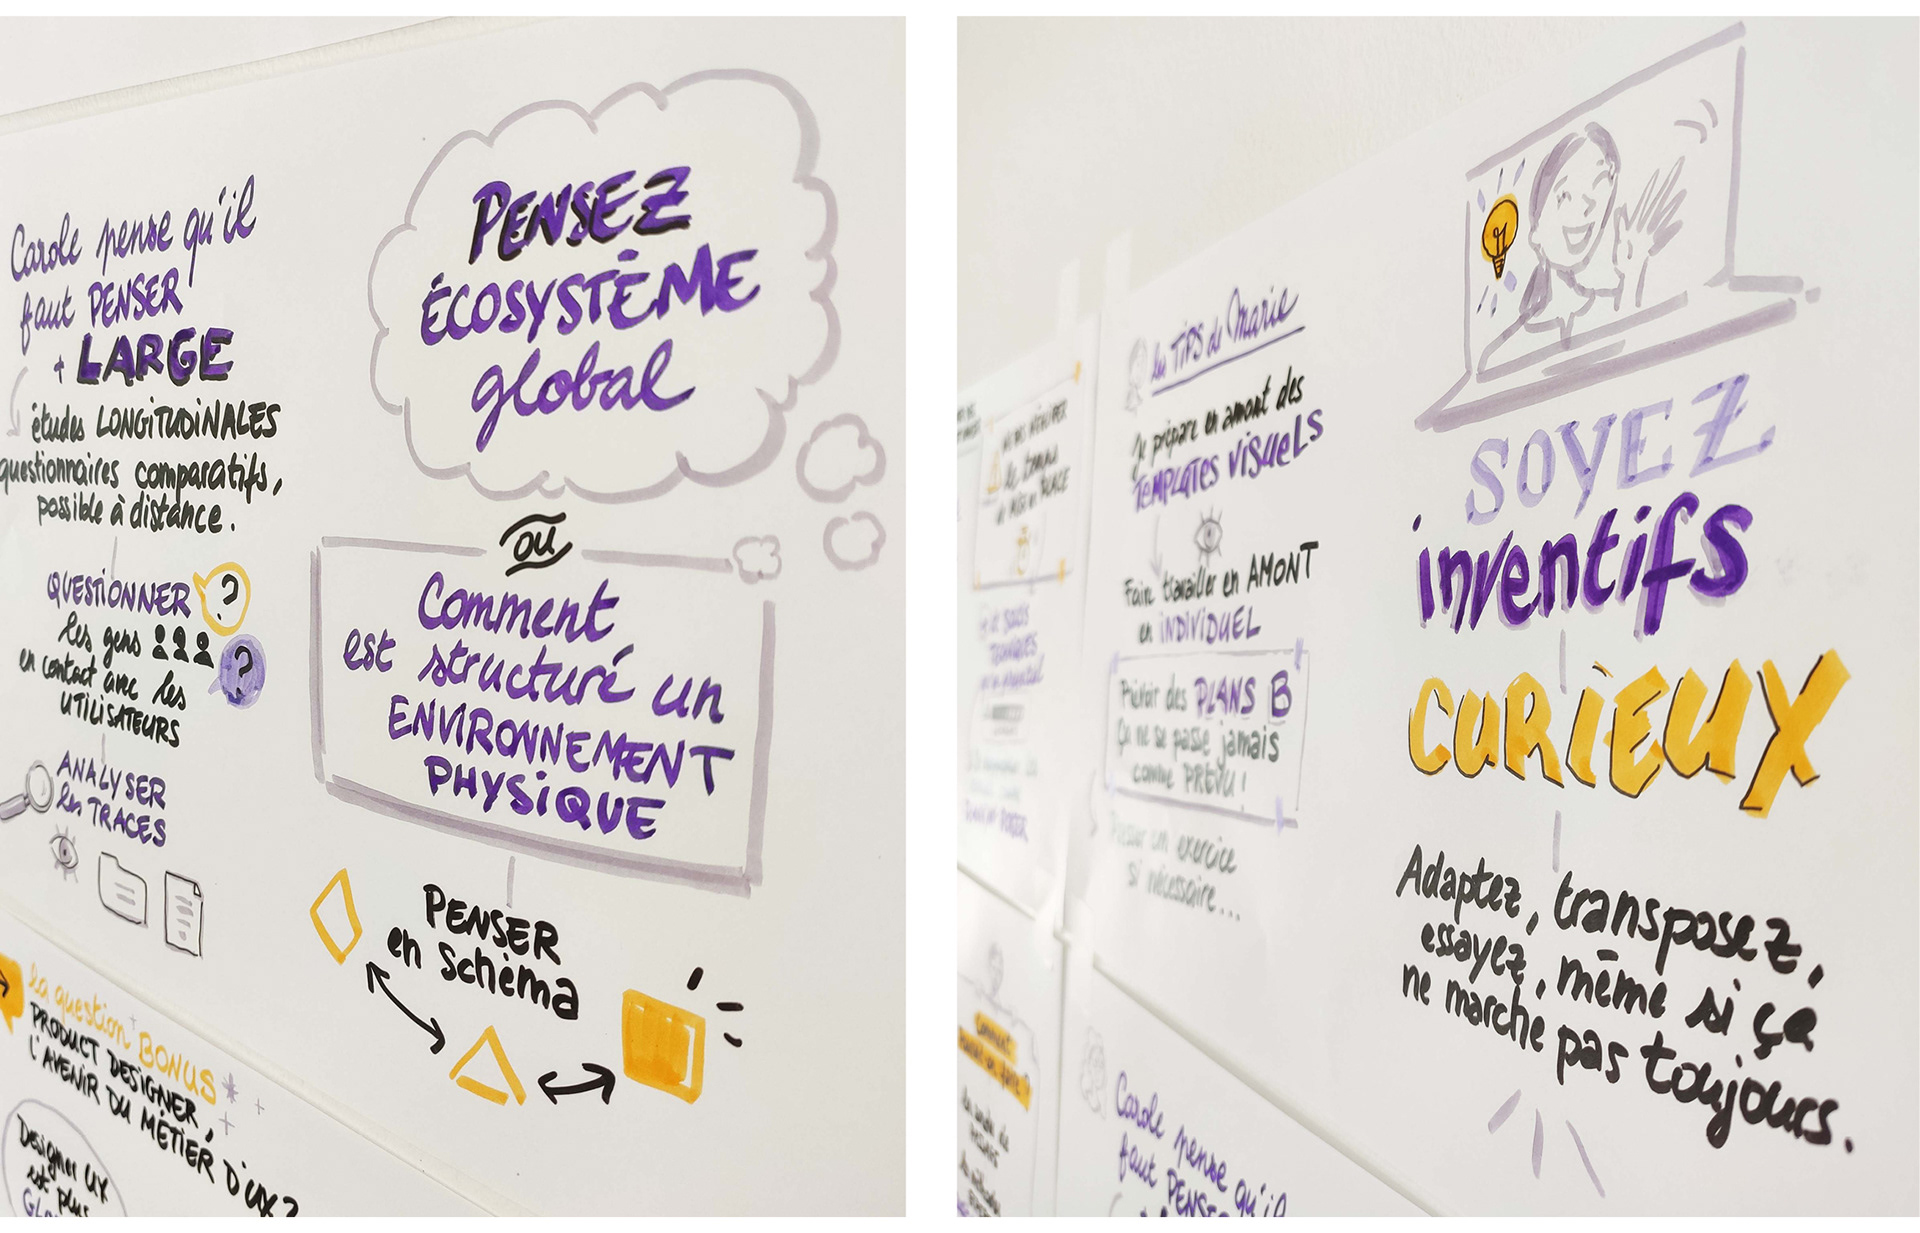 Carole pense qu'il
faut PENSER
+ LARGE
études LONGITUDINALES
questionnaires comparatifs,
possible à distance.
QUESTIONNER
?
les gens
?
en contact avec les
UTILISATEURS
ANALYSER
les TRACES
la question BONUS
PRODUCT DESIGNER,
L'AVENIR DU MÉTIER D'UX?
Designer UX
est plus
PENSEZ
ÉCOSYSTÈME
global
OU
Comment
est structuré un
ENVIRONNEMENT
PHYSIQUE
PENSER
en Schèma
les TIPS de Marie
Je prépare en amont des
TEMPLATES VISUELS
Faire travailler en AMONT
en INDIVIDUEL
Prévoir des PLANS B
Ça ne se passe jamais
comme PRÉVU!
un exercice
si nécessaire...
Carole pense qu'il
faut PENSER
SOYEZ
inventifs
CURIEUX
Adaptez, transposez,
essayez, même si ça
ne marche pas toujours.